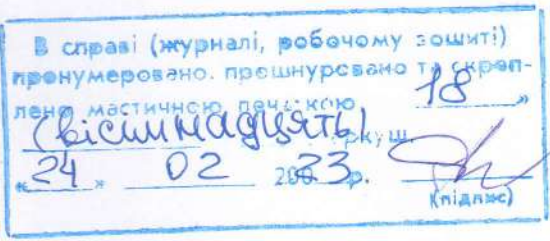 В справі (журналі, робочому зошиті)
пронумеровано. прошнуровано та скріп-
лено мастичною печаткою 18 "
(вісімнадцять) аркуш.
"24" 02 2023 р.
(підпис)